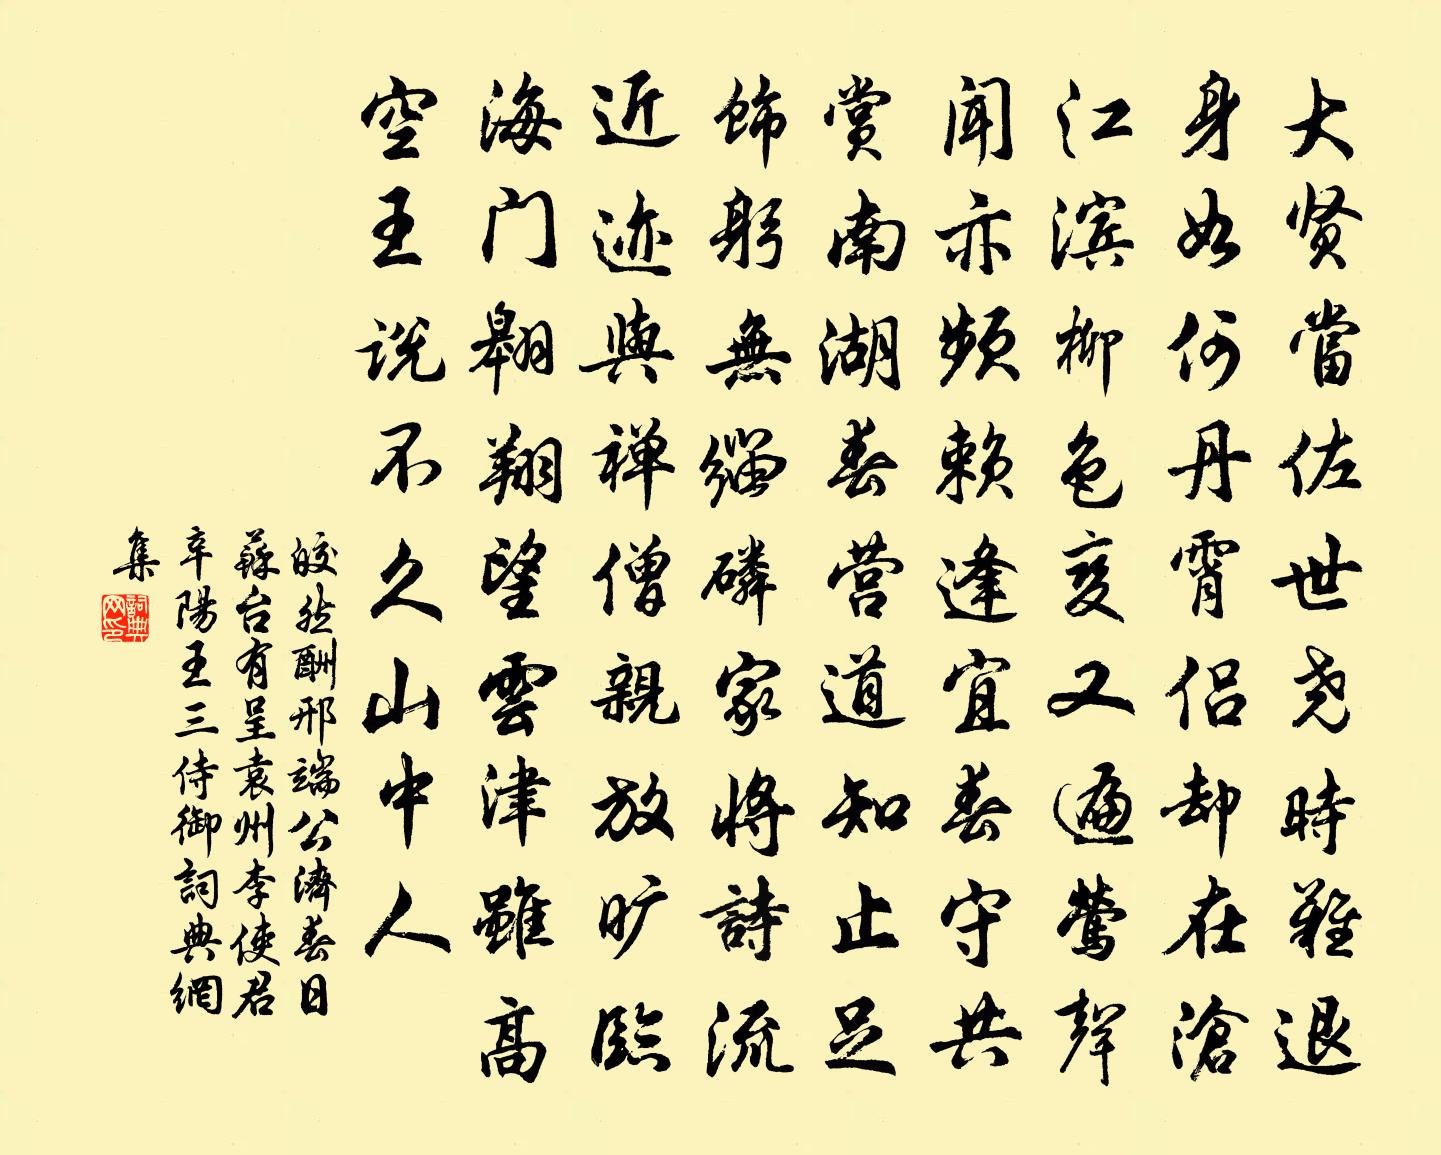 大贤當佐世尧時難退
身如何丹霄侣却在滄
江滨柳色变又遍莺聲
闻亦频赖逢宜春守共
赏南湖春营道知止足
饰躬無缁磷家將詩流
近迹與禅僧親放旷臨
海门翱翔望雲津雖高
空王说不久山中人
皎然酬邢端公濟春日
蘇台有呈袁州李使君
辛陽王三侍御詞典網
集
詞典网印